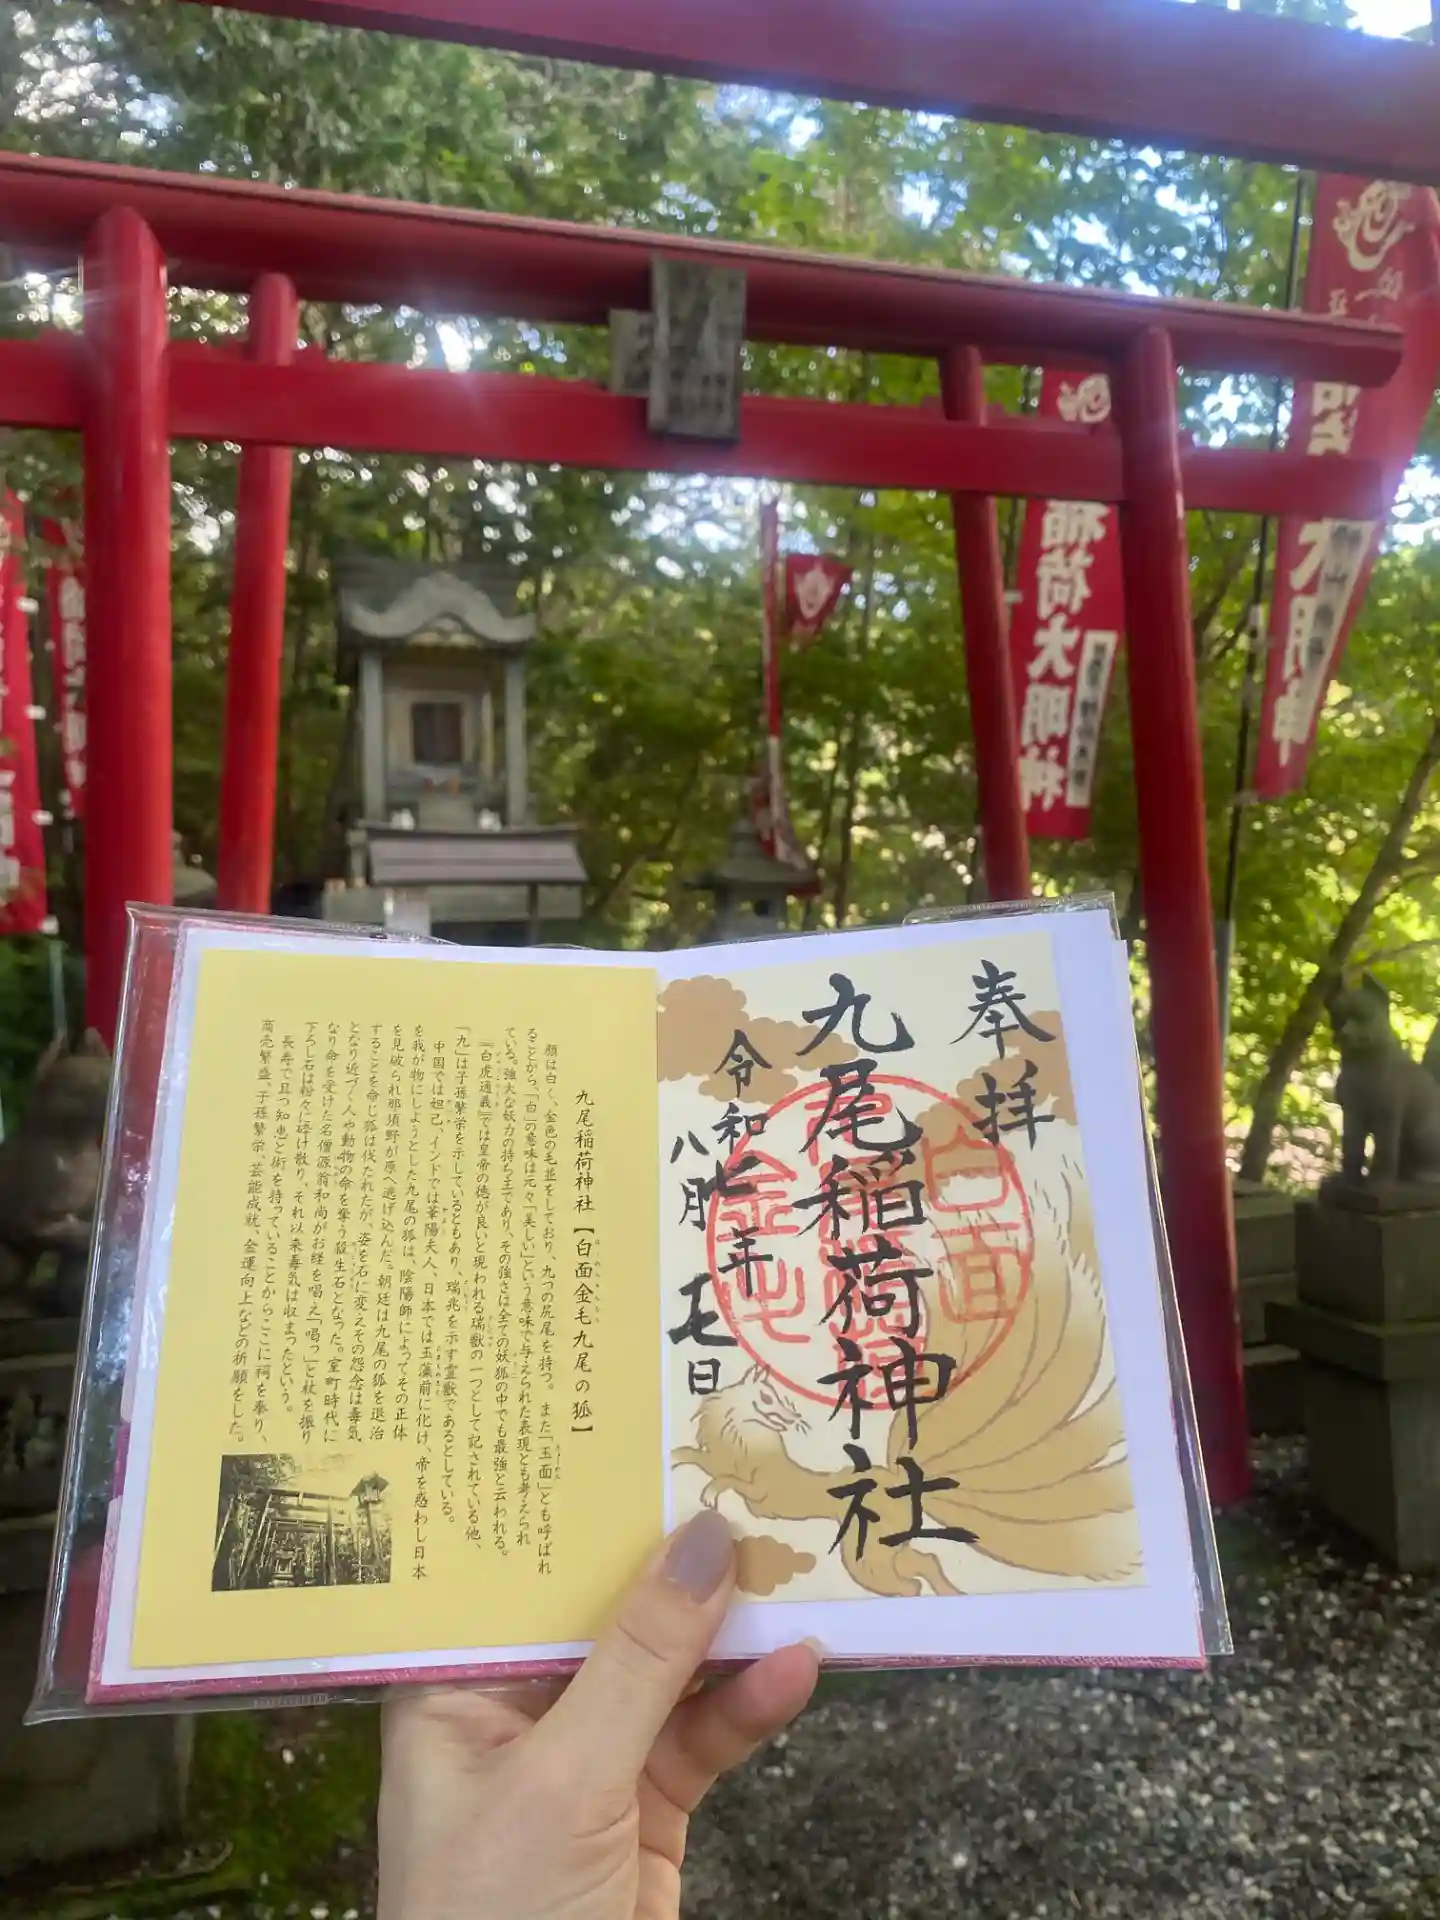 稲荷大明神
大明神
奉拝
九尾稲荷神社
令和七年
八月七日
白面
金毛
九尾稲荷神社【白面金毛九尾の狐】
顔は白く、金色の毛並をしており、九つの尻尾を持つ。また「玉面」とも呼ばれ
ることから、「白」の意味は元々「美しい」という意味で与えられた表現とも考えられ
ている。強大な妖力の持ち主であり、その強さは全ての妖狐の中でも最強と云われる。
『白虎通義』では皇帝の徳が良いと現われる瑞獣の一つとして記されている他、
「九」は子孫繁栄を示しているともあり、瑞兆を示す霊獣であるとしている。
中国では妲己、インドでは華陽夫人、日本では玉藻前に化け、帝を惑わし日本
を我が物にしようとした九尾の狐は、陰陽師によってその正体
を見破られ那須野が原へ逃げ込んだ。朝廷は九尾の狐を退治
することを命じ狐は伐たれたが、姿を石に変えその怨念は毒気
となり近づく人や動物の命を奪う殺生石となった。室町時代に
なり命を受けた名僧源翁和尚がお経を唱え「喝っ」と杖を振り
下ろし石は粉々に砕け散り、それ以来毒気は収まったという。
長寿で且つ知恵と術を持っていることからここに祠を奉り、
商売繁盛、子孫繁栄、芸能成就、金運向上などの祈願をした。